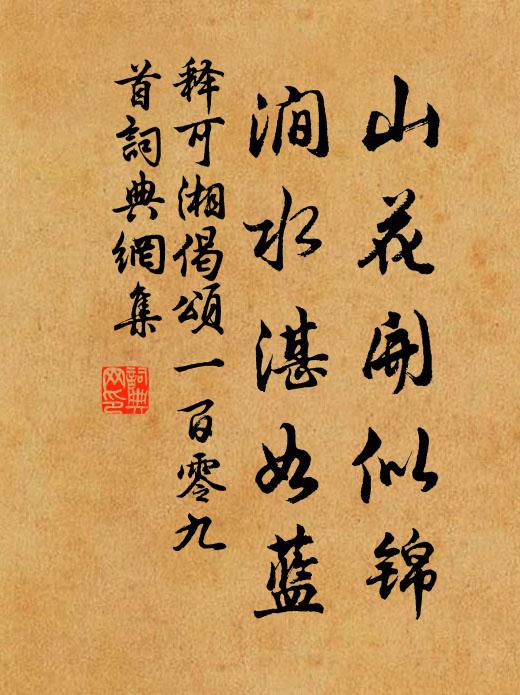 山花開似锦
澗水湛如藍
释可湘偈頌一百零九
首詞典網集
詞典網印